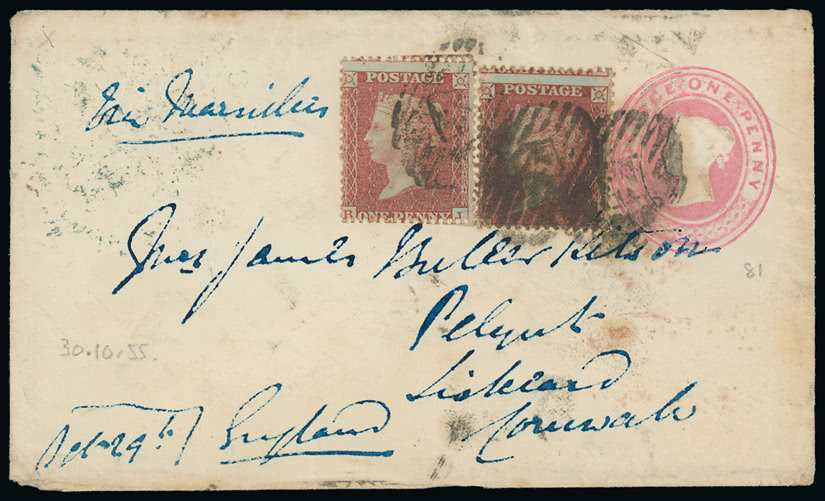 via Marseilles
POSTAGE
ONE PENNY
POSTAGE
ONE PENNY
Mrs James Buller Kitson
Pelynt
Liskeard
Cornwall
England
Oct 29th
30.10.55.
81
x